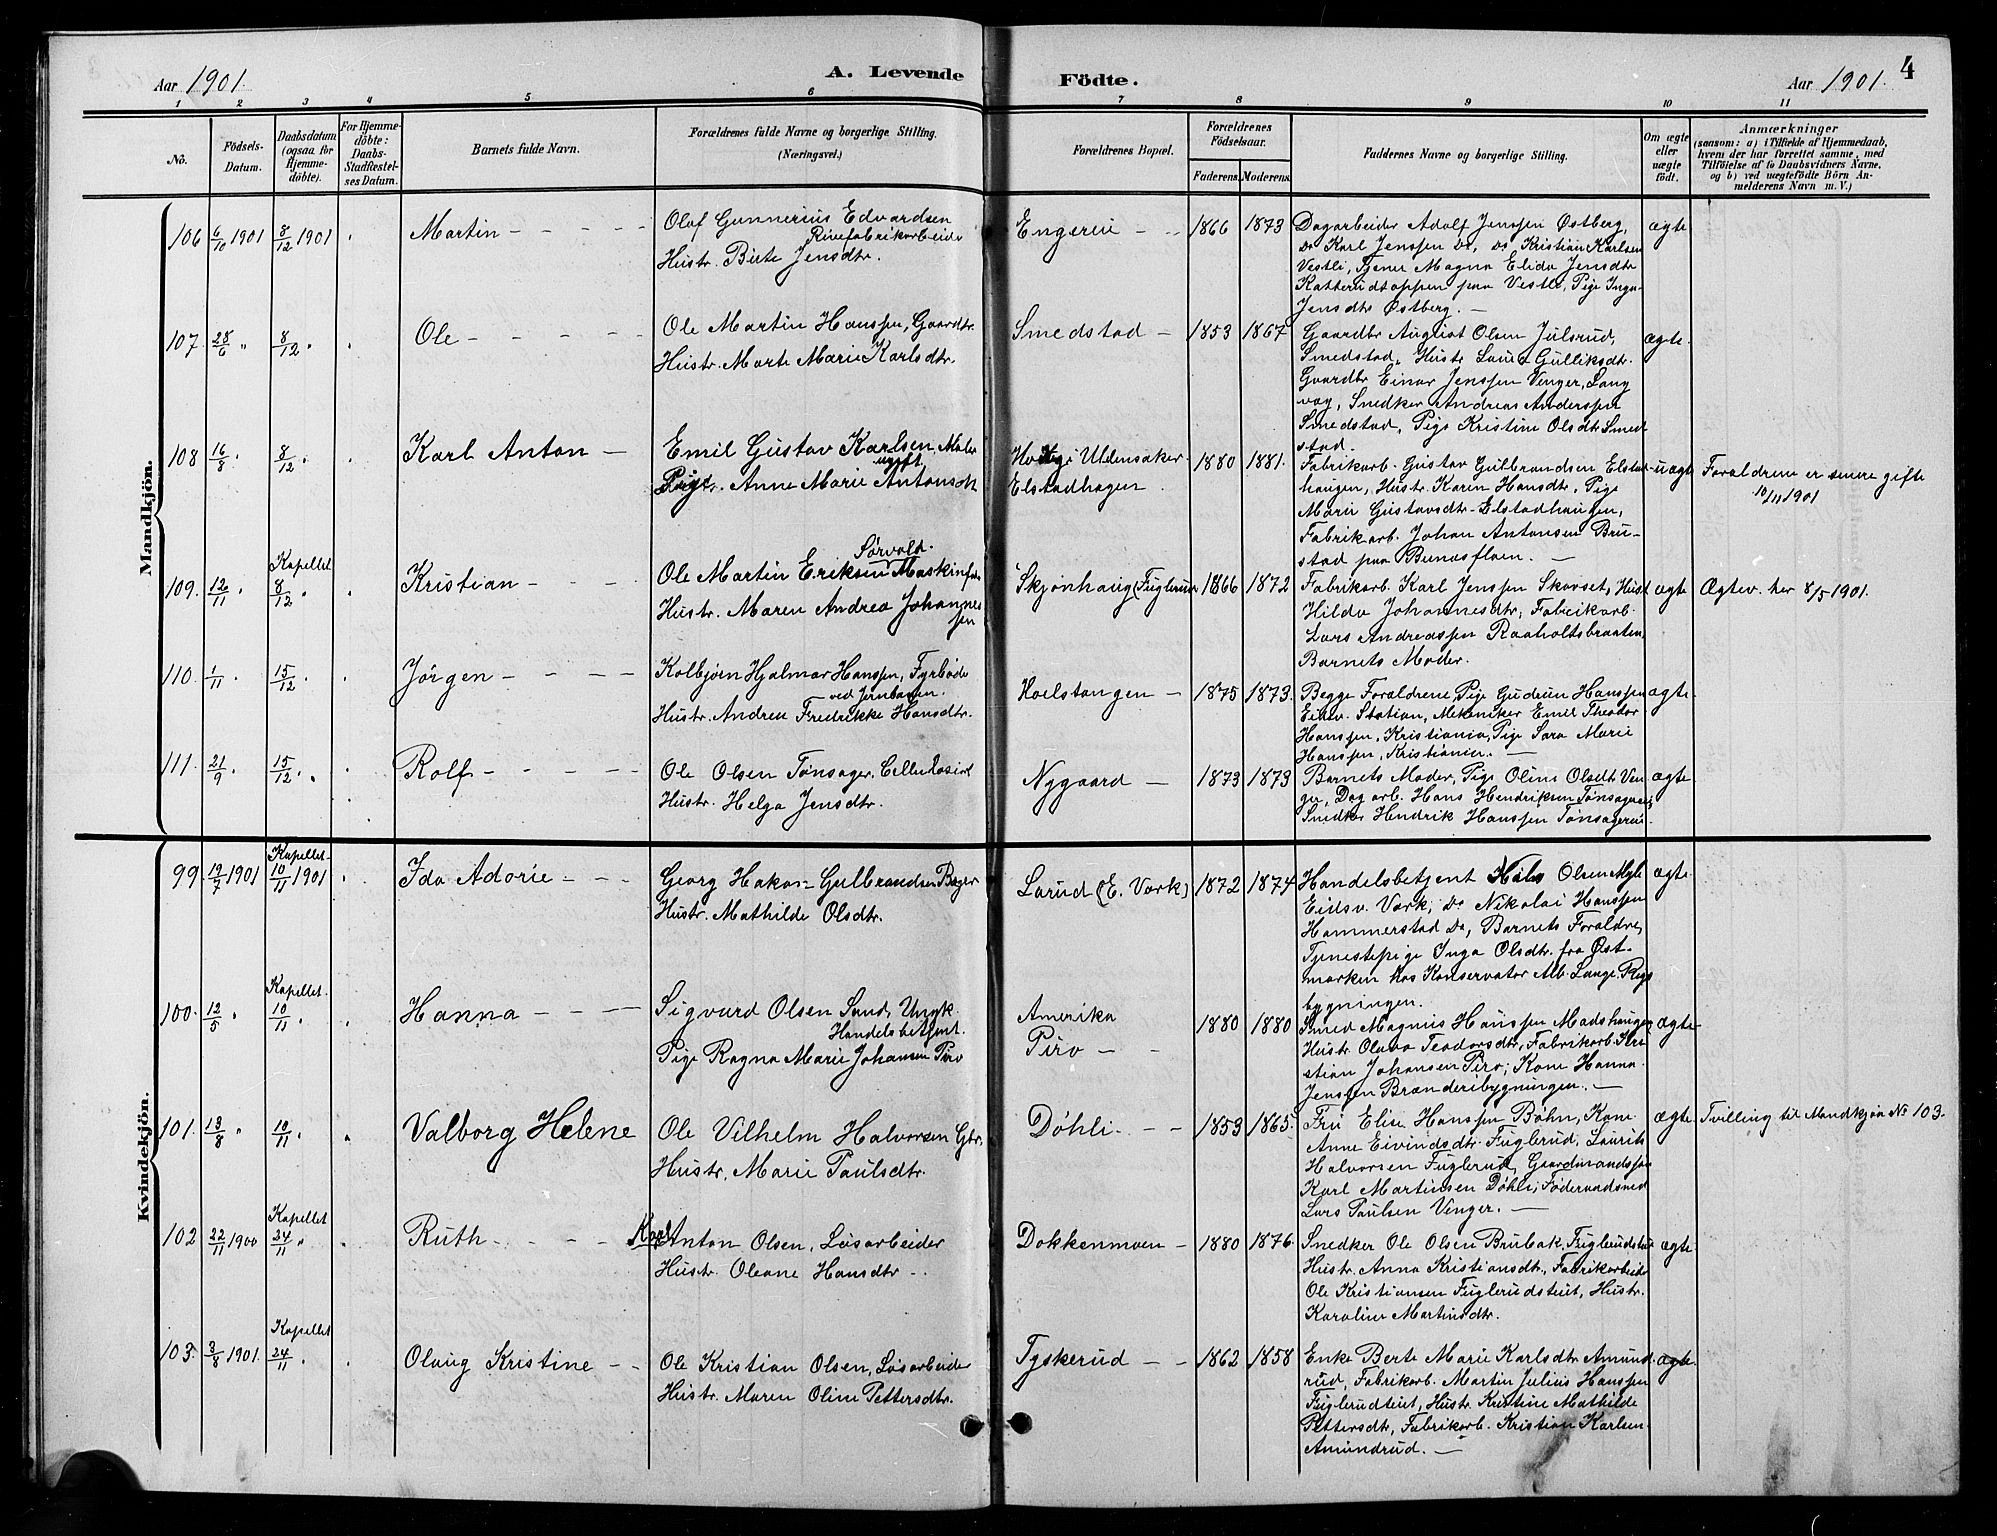 4
Aar 1901.
A. Levende
Födte.
Aar 1901.
1 2 3 4 5 6 7 8 9 10 11
No.
Födsels-
Datum.
Daabsdatum
(ogsaa for
Hjemme-
döbte).
For Hjemme-
döbte:
Daabs-
Stadfæstel-
ses Datum.
Barnets fulde Navn.
Forældrenes fulde Navne og borgerlige Stilling.
(Næringsvei.)
Forældrenes Bopæl.
Forældrenes
Födselsaar.
Faderens.
Moderens.
Faddernes Navne og borgerlige Stilling.
Om ægte
eller
uægte
födt.
Anmærkninger
(saasom: a) i Tilfælde af Hjemmedaab,
hvem der har forrettet samme, med
Tilföielse af to Daabsvidners Navne,
og b) ved uægtefödte Börn An-
melderens Navn m. V.)
Mandkjön.
106 6/10 1901 8/12 1901
Martin
Olaf Gunnerius Edvardsen
Hustr. Birte Jensdtr.
1866 1873
Dagarbeider Adolf Jenssen Østberg,
Do Karl Jenssen Do, Do Kristian Karlsen
Vestli, Tjener Magna Elida Jensdtr
Katterudtoppen paa Vestli, Pige Inga
Jensdtr Østberg.
ægte
107 28/6 " 8/12 "
Ole
Ole Martin Hanssen, Gaardbr.
Hustr. Marte Marie Karlsdtr.
Smedstad
1853 1867
Gaardbr August Olsen Julsrud,
Smedstad, Hustr Laura Gulliksdtr.
Gaardbr Einar Jenssen Venger, Lang
vag, Snedker Andreas Anderssen
Smedstad, Pige Kristine Olsdtr Smed
stad.
ægte.
108 16/8 8/12
Karl Anton
Emil Gustav Karlsen, Maler
ugift
Pige Anne Marie Antonsdt
Ullensaker
Elstadhagen
1880 1881.
Fabrikarb. Gustav Gulbrandsen Elstad
haugen, Hustr. Karen Hansdtr, Pige
Marie Gustavsdtr Elstadhaugen,
Fabrikarb. Johan Antonsen Bru-
stad paa Bønasfloen.
uægte
Forældrene er senere gifte
10/11 1901
109. 12/11 " Kapellet 8/12 "
Kristian
Sørvold.
Ole Martin Eriksen Maskinf
Hustr. Maren Andrea Johannes
sen
Skjønhaug (Fuglerud
1866 1872
Fabrikarb. Karl Jenssen Skovset, Hust
Hilda Johannesdtr, Fabrikarb.
Lars Andreassen Raaholtsbraaten,
Barnets Moder.
ægte
Ægtev. her 8/5 1901.
110. 1/11 15/12
Jørgen
Kolbjørn Hjalmar Hanssen, Fyrbøde
ved Jernbanen.
Hustr. Andrea Fredrikke Hansdtr.
Hoelstangen
1875 1873.
Begge Forældrene, Pige Gudrun Hanssen
Eidsv. Station, Mekaniker Emil Theodor
Hanssen, Kristiania, Pige Sara Marie
Hanssen, Kristiania.
ægte
111. 21/9 15/12 "
Rolf
Ole Olsen Tønsager, Cellulosearb
Hustr. Helga Jensdtr.
Nygaard
1873 1873
Barnets Moder, Pige Oline Olsdtr Ven
ger, Dagarb. Hans Hendriksen Tønsageie,
Snedker Hendrik Hanssen Tønsagerei.
ægte
Kvindekjön.
99 19/7 1901 Kapellet 10/11 1901
Ida Adorie
Georg Hakon Gulbrandsen Bager
Hustr. Mathilde Olsdtr.
Larud (E. Værk)
1872 1874
Handelsbetjent Olsen Myhr
Eidsv. Værk, Do Nikolai Hanssen
Hammerstad Do, Barnets Forældre,
Tjenestepige Inga Olsdtr. fra Øst-
marken hos Konservator Alb. Lange Rigs
bygningen.
ægte
100. 12/5 " Kapellet 10/11 "
Hanna
Sigvard Olsen Sand, Ungk.
Handelsbetjent.
Pige Ragna Marie Johansen Piro
Amerika
Piro
1880 1880
Smed Magnus Hanssen Madshaugen
Hustr. Olava Teodorsdtr, Fabrikarb. Kri
stian Johansen Piro; Kone Hanna
Jenssen Brænderibygningen.
ægte
101. 13/8 " 10/11 "
Valborg Helene
Ole Vilhelm Halvorsen Gbr.
Hustr. Marie Paulsdtr.
Døhli
1853 1865.
Fru Elise Hanssen Bøhn, Kone
Anne Eivindsdtr. Fuglerud, Laurits
Halvorsen Fuglerud, Gaardmandssøn
Karl Martinsen Døhli, Føderaadsmd
Lars Paulsen Venger.
ægte
Tvilling til Mandkjøn No 103.
102 22/11 1900 Kapellet 24/11 "
Ruth
Karl Anton Olsen, Løsarbeider
Hustr. Oleane Hansdtr
Dokkenmoen
1880 1876.
Snedker Ole Olsen Brubak, Fuglerudstui
Hustr. Anna Kristiansdtr, Fabrikarbeider
Ole Kristiansen Fuglerudsteiet, Hustr.
Karoline Martinsdtr.
ægte
103. 3/8 1901. Kapellet 24/11 "
Olaug Kristine
Ole Kristian Olsen, Løsarbeider
Hustr. Maren Oline Pettersdtr.
Tyskerud
1862 1858
Enke Berte Marie Karlsdtr Amund
rud, Fabrikarb. Martin Julius Hanssen
Fuglerudteiet, Hustr. Kristine Mathilde
Pettersdtr, Fabrikarb. Kristian Karlsen
Amundrud.
ægte